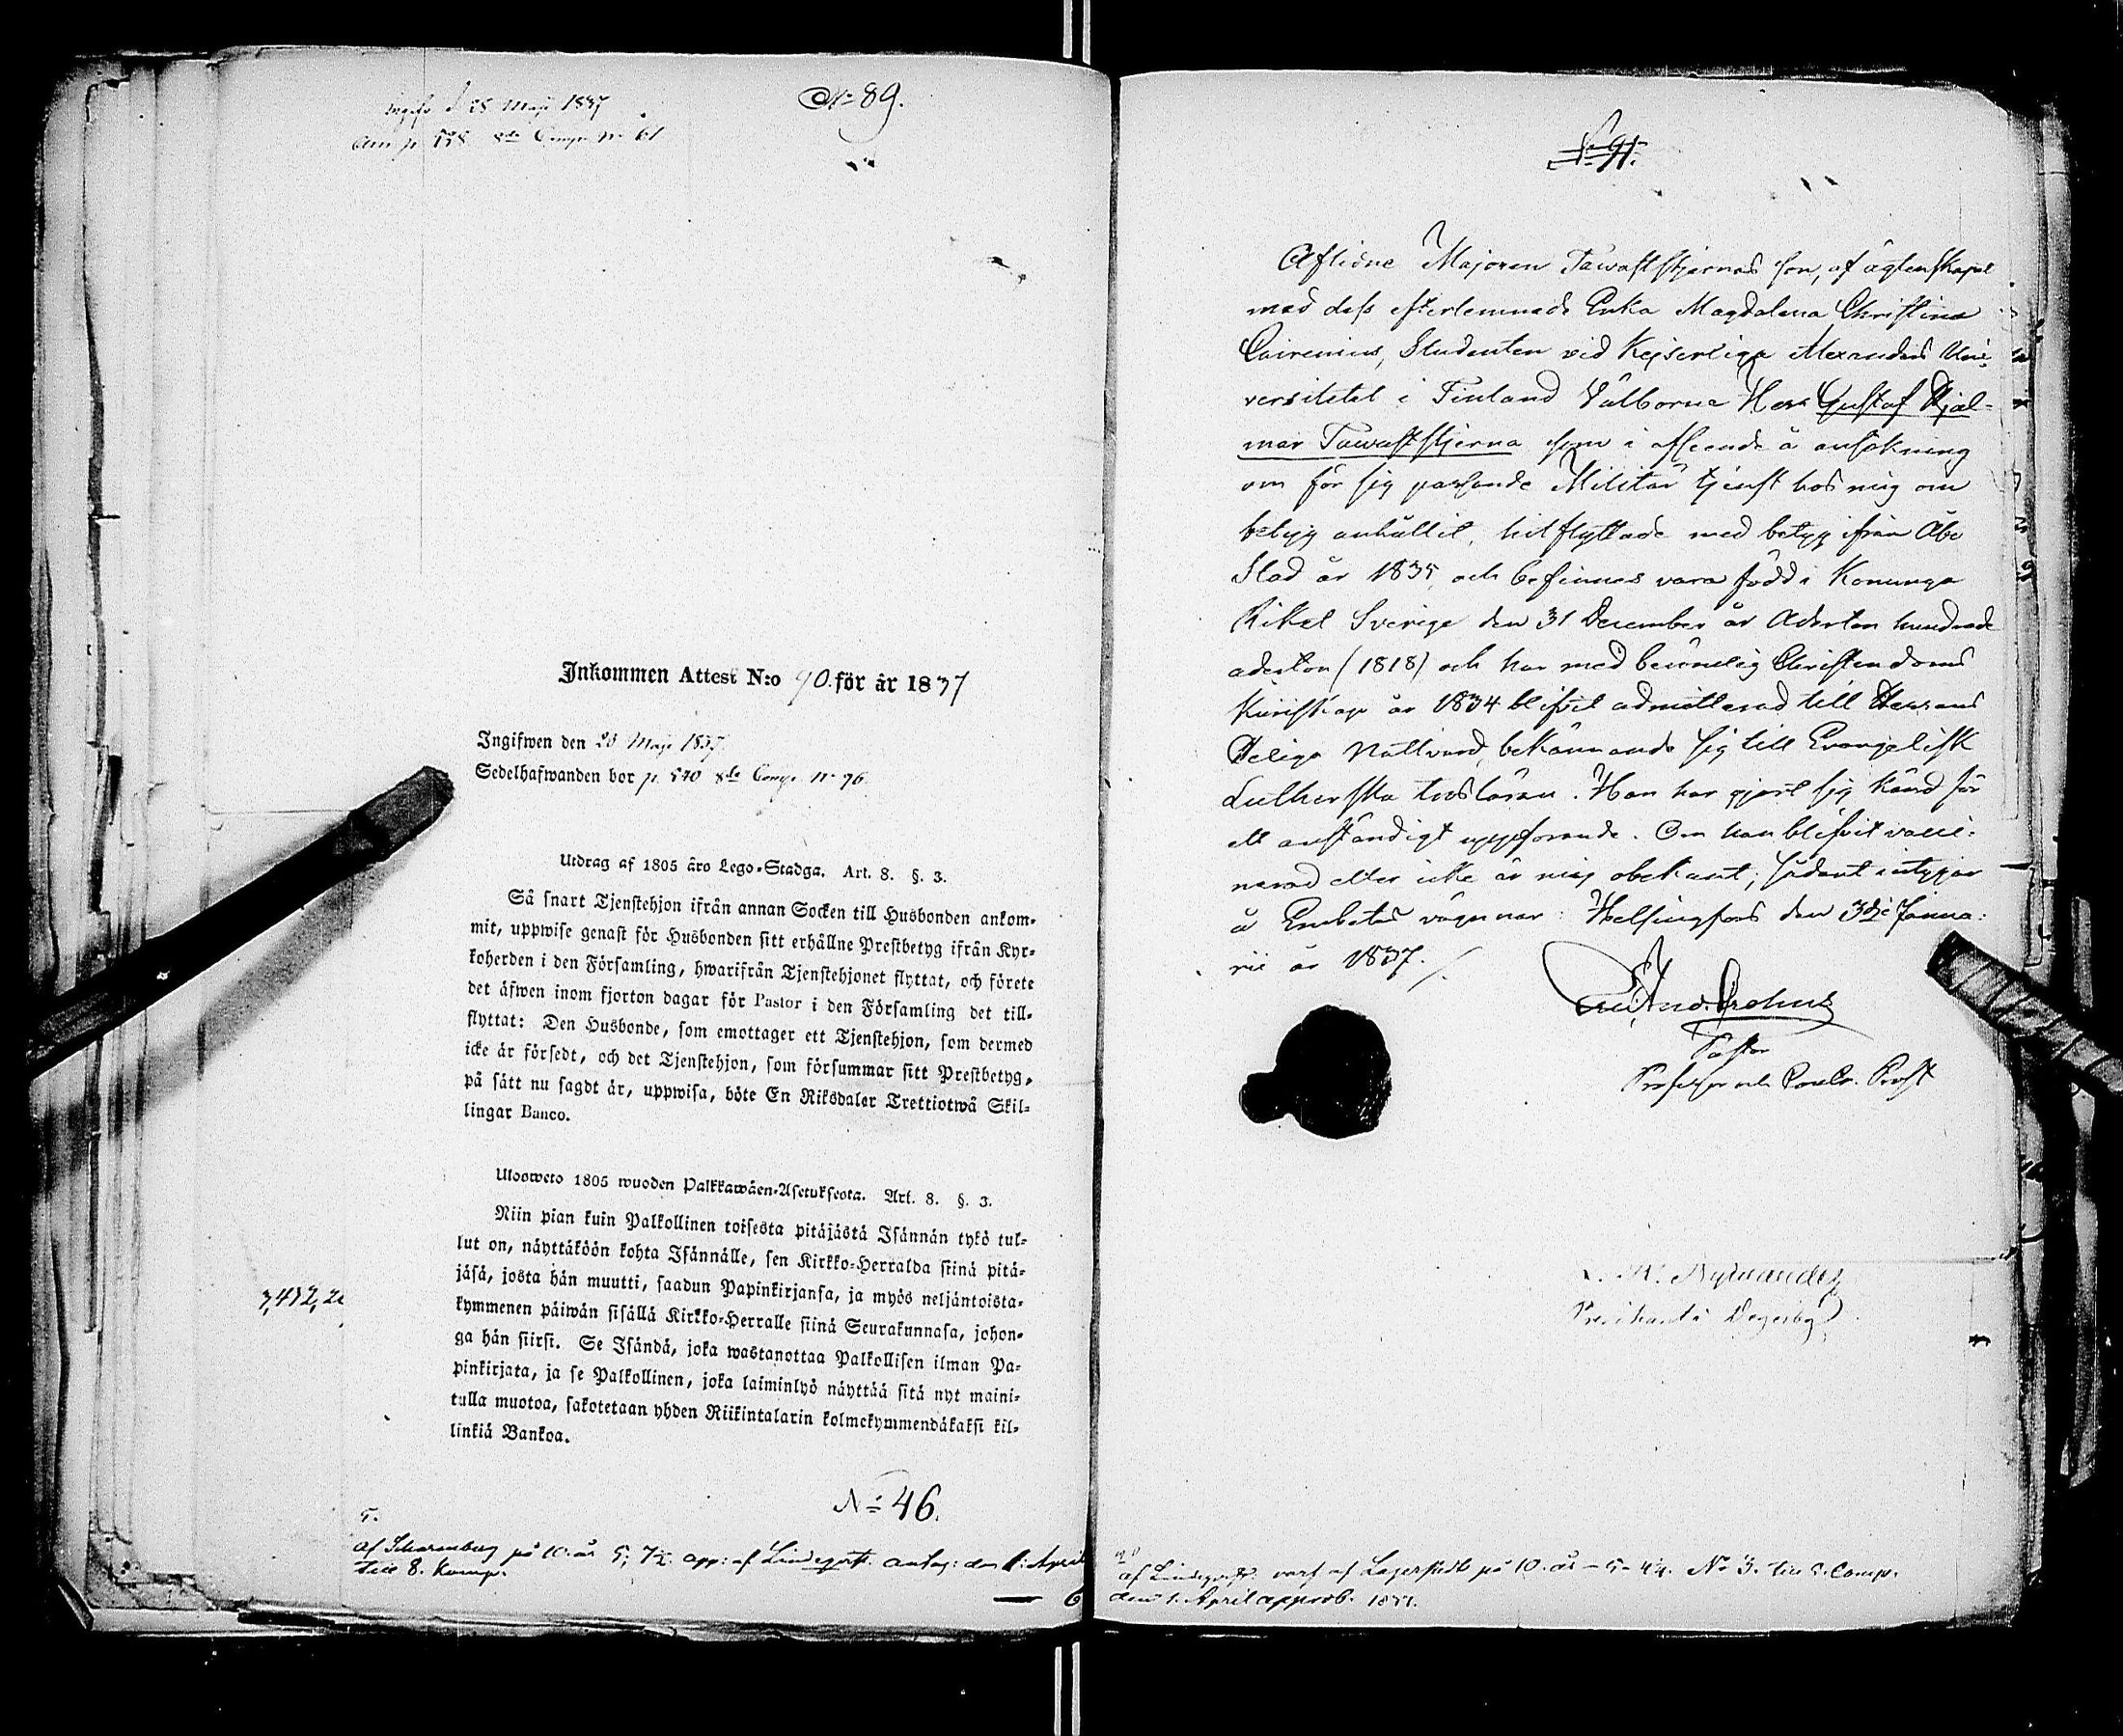 Ingifv. d 28 Maji 1837
Ank p. 538 8de Comp. No 61
No 89.
Inkommen Attest N:o 90. för år 1837
Ingifwen den 28 Maji 1837.
Sedelhafwanden bor p. 540 8de Comp. No 96.
Utdrag af 1805 års Lego-Stadga. Art. 8. §. 3.
Så snart Tjenstehjon ifrån annan Socken till Husbonden ankom-
mit, uppwise genast för Husbonden sitt erhållne Prestbetyg ifrån Kyr-
koherden i den Församling, hwarifrån Tjenstehjonet flyttat, och förete
det äfwen inom fjorton dagar för Pastor i den Församling det till-
flyttat: Den Husbonde, som emottager ett Tjenstehjon, som dermed
icke är försedt, och det Tjenstehjon, som försummar sitt Prestbetyg,
på sätt nu sagdt är, uppwisa, böte En Riksdaler Trettiotwå Skil-
lingar Banco.
Ulosweto 1805 wuoden Palkkawäen-Asetuksesta. Art. 8. §. 3.
Niin pian kuin Palkollinen toisesta pitäjästä Isännän tykö tul-
lut on, näyttäköön kohta Isännälle, sen Kirkko-Herralda siinä pitä-
jäsä, josta hän muutti, saadun Papinkirjansa, ja myös neljäntoista-
kymmenen päiwän sisällä Kirkko-Herralle siinä Seurakunnasa, johon-
ga hän siirsi. Se Isändä, joka wastanottaa Palkollisen ilman Pa-
pinkirjata, ja se Palkollinen, joka laiminlyö näyttää sitä nyt maini-
tulla muotoa, sakotetaan yhden Riikintalarin kolmekymmendäkaksi kil-
linkiä Bankoa.
No 46.
5.
af Scharenberg på 10. år 5; 7½. app: af Lindeqvist. antag: den 1: April
till 8. Komp.
6
91.
Aflidne Majoren Tawaststjernas son, af ägtenskapet
med dess efterlemnade Enka Magdalena Christina
Cairenius, Studenten vid Kejserliga Alexanders Uni-
versitetet i Finland Välborne Herr Gustaf Hjal-
mar Tawaststjerna som i afseende å ansökning
om för sig passande Militär tjenst hos mig om
betyg anhållit, hitflyttade med betyg ifrån Åbo
Stad år 1835 och befinnes vara född i Konunga
Riket Sverige den 31 December år Aderton hundrade
aderton (1818) och har med berömelig Christendoms
Kunskap år 1834 blifvit admitterad till Herrans
Heliga Nattvard, bekännande sig till Evangelisk
Lutherska trosläran. Han har gjort sig känd för
ett anständigt uppförande. Om han blifvit vacci-
nerad eller icke är mig obekant; sådant intygar
å Embetets vägnar: Helsingfors den 3de Janua-
rii år 1837.
Pastor
Professor och Contr. Prost
Nylander
Predikant i Degerby
af Lindeqvist. varf af Lagerstedt på 10. år - 5- 4¼. No 3. till 8. Comp.
den 1. April approb. 1837.